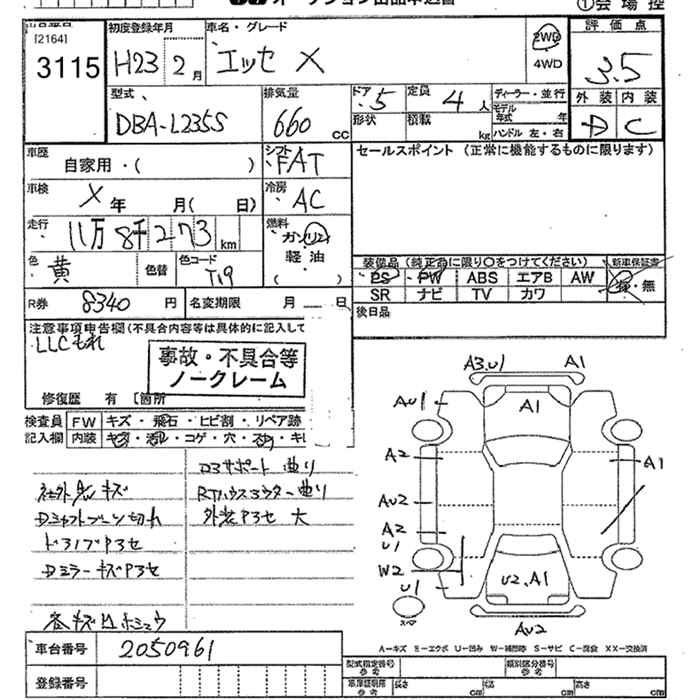 オークション出品申込書
①会場控
出品番号
初度登録年月
車名・グレード
評価点
[2164]
3115
H23 2月
エッセ X
2WD
4WD
3.5
型式
DBA-L235S
排気量
660 cc
ドア 5
定員 4人
ディーラー・並行
モデル年式 年
形状
積載 kg
ハンドル 左・右
外装 内装
D C
車歴
自家用・( )
シフト
FAT
セールスポイント (正常に機能するものに限ります)
車検
X年 月( 日)
冷房
AC
走行
11万8千273km
燃料
ガソリン
軽油
( )
色
黄
色替
色コード
T19
装備品(純正品に限り○をつけてください)
新車保証書
PS PW ABS エアB AW
有・無
SR ナビ TV カワ
R券 8340円
名変期限 月 日
後日品
注意事項申告欄(不具合内容等は具体的に記入して
LLCもれ
事故・不具合等
ノークレーム
修復歴 有 [箇所
検査員記入欄
FW キズ・飛石・ヒビ割・リペア跡
内装 キズ・汚れ・コゲ・穴・スレ・キレ
D3サポート曲り
社外品 キズ
Dシャフトブーツ切れ
Dミラーキズアセ
車台番号 2050961
登録番号
A3.U1 A1
AU1 A1
A2 A1
AU2
A2
U1
W2
U1
U2.A1
スペア
AU2
A-キズ E-エクボ U-凹み W-補修跡 S-サビ C-腐食 XX-交換済
型式指定番号 参考
類別区分番号 参考
車庫証明用 参考
長さ cm
幅 cm
高さ cm